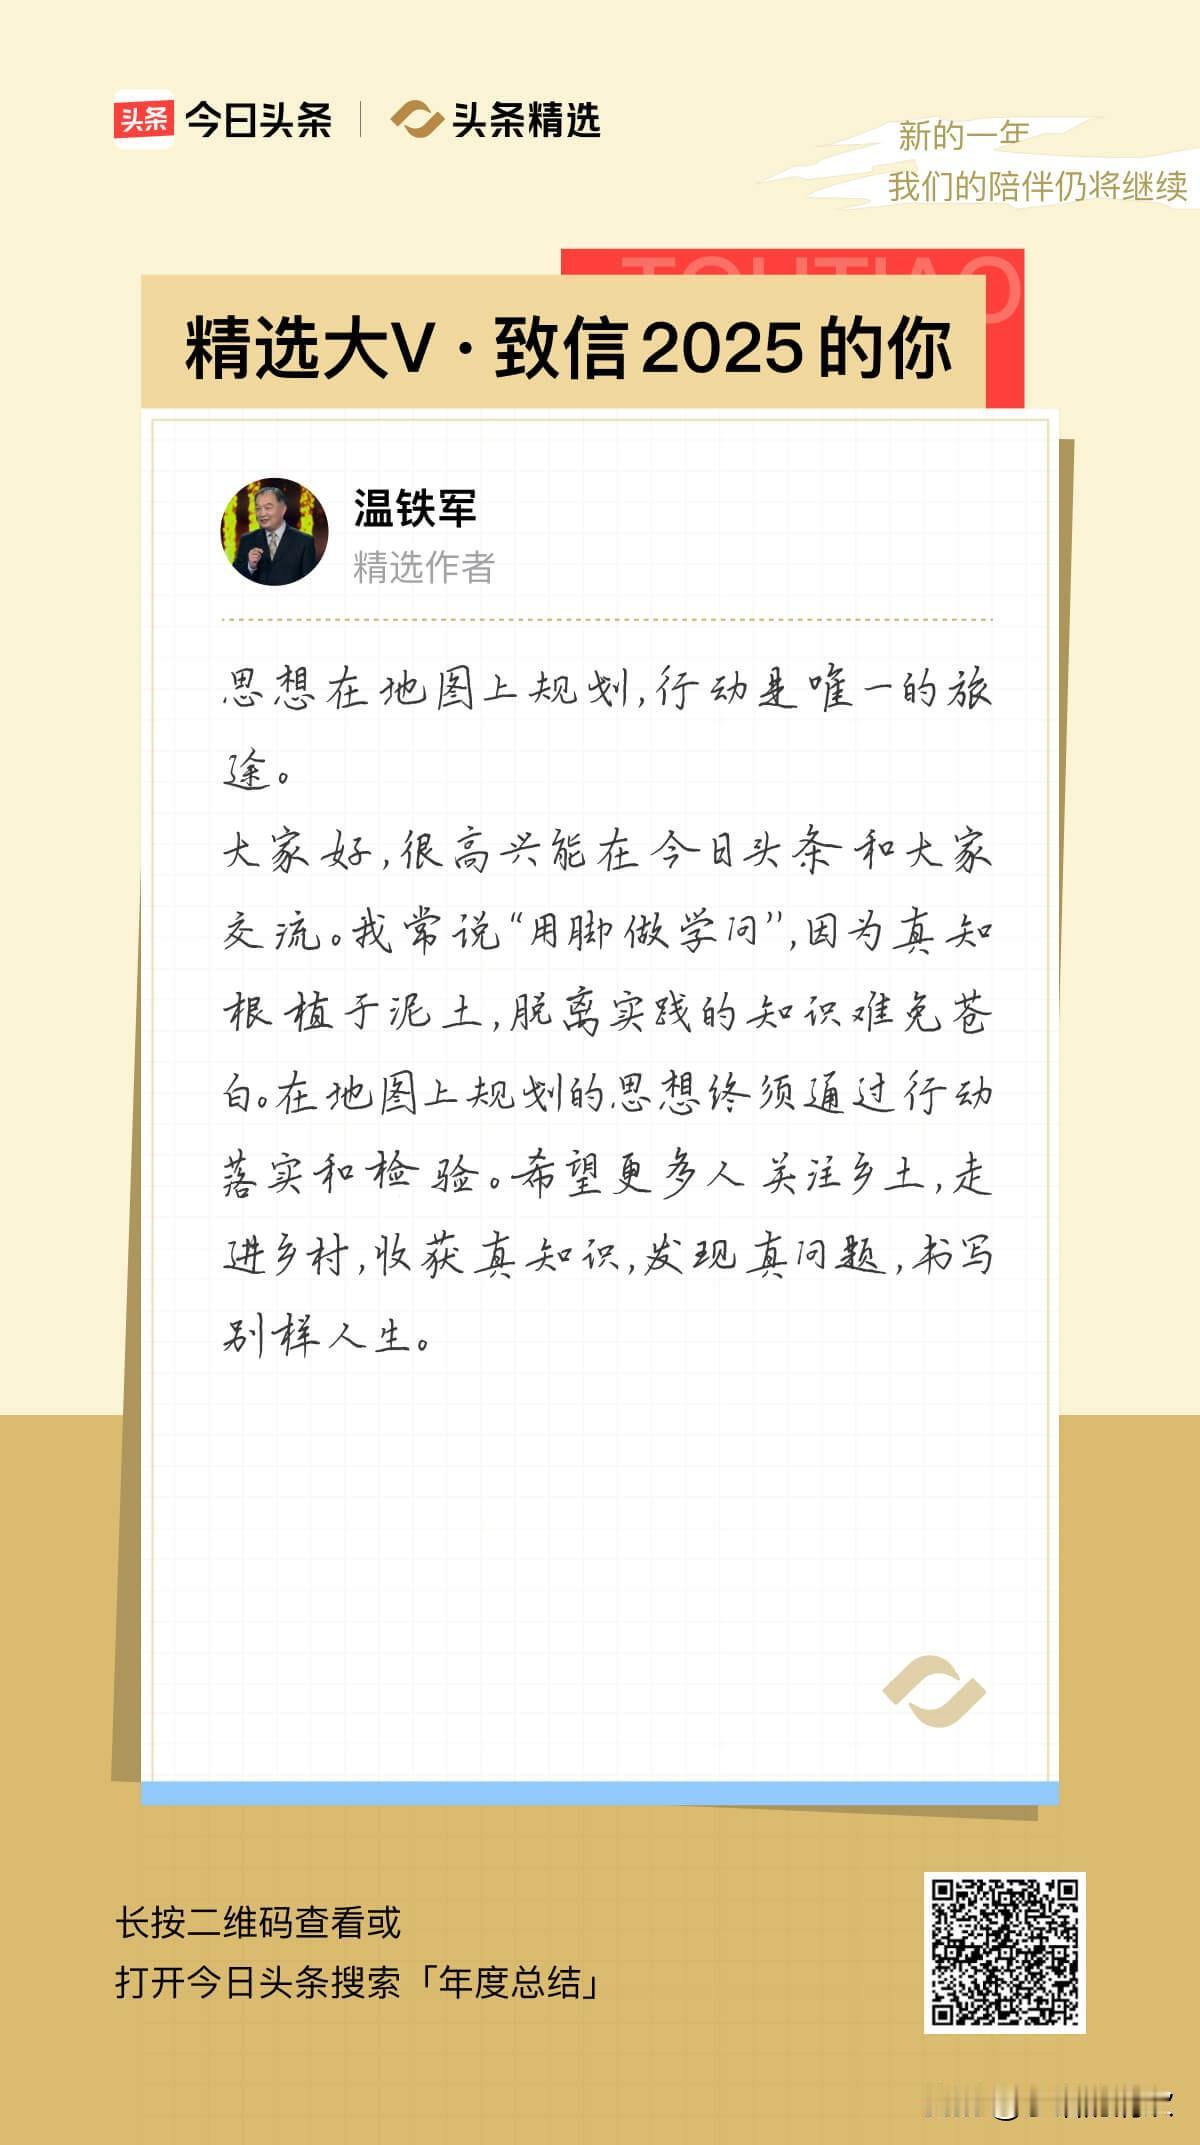 头条 今日头条 | 头条精选
新的一年
我们的陪伴仍将继续
TOUTIAO
精选大V·致信2025的你
温铁军
精选作者
思想在地图上规划,行动是唯一的旅
途。
大家好,很高兴能在今日头条和大家
交流。我常说“用脚做学问”,因为真知
根植于泥土,脱离实践的知识难免苍
白。在地图上规划的思想终须通过行动
落实和检验。希望更多人关注乡土,走
进乡村,收获真知识,发现真问题,书写
别样人生。
长按二维码查看或
打开今日头条搜索「年度总结」